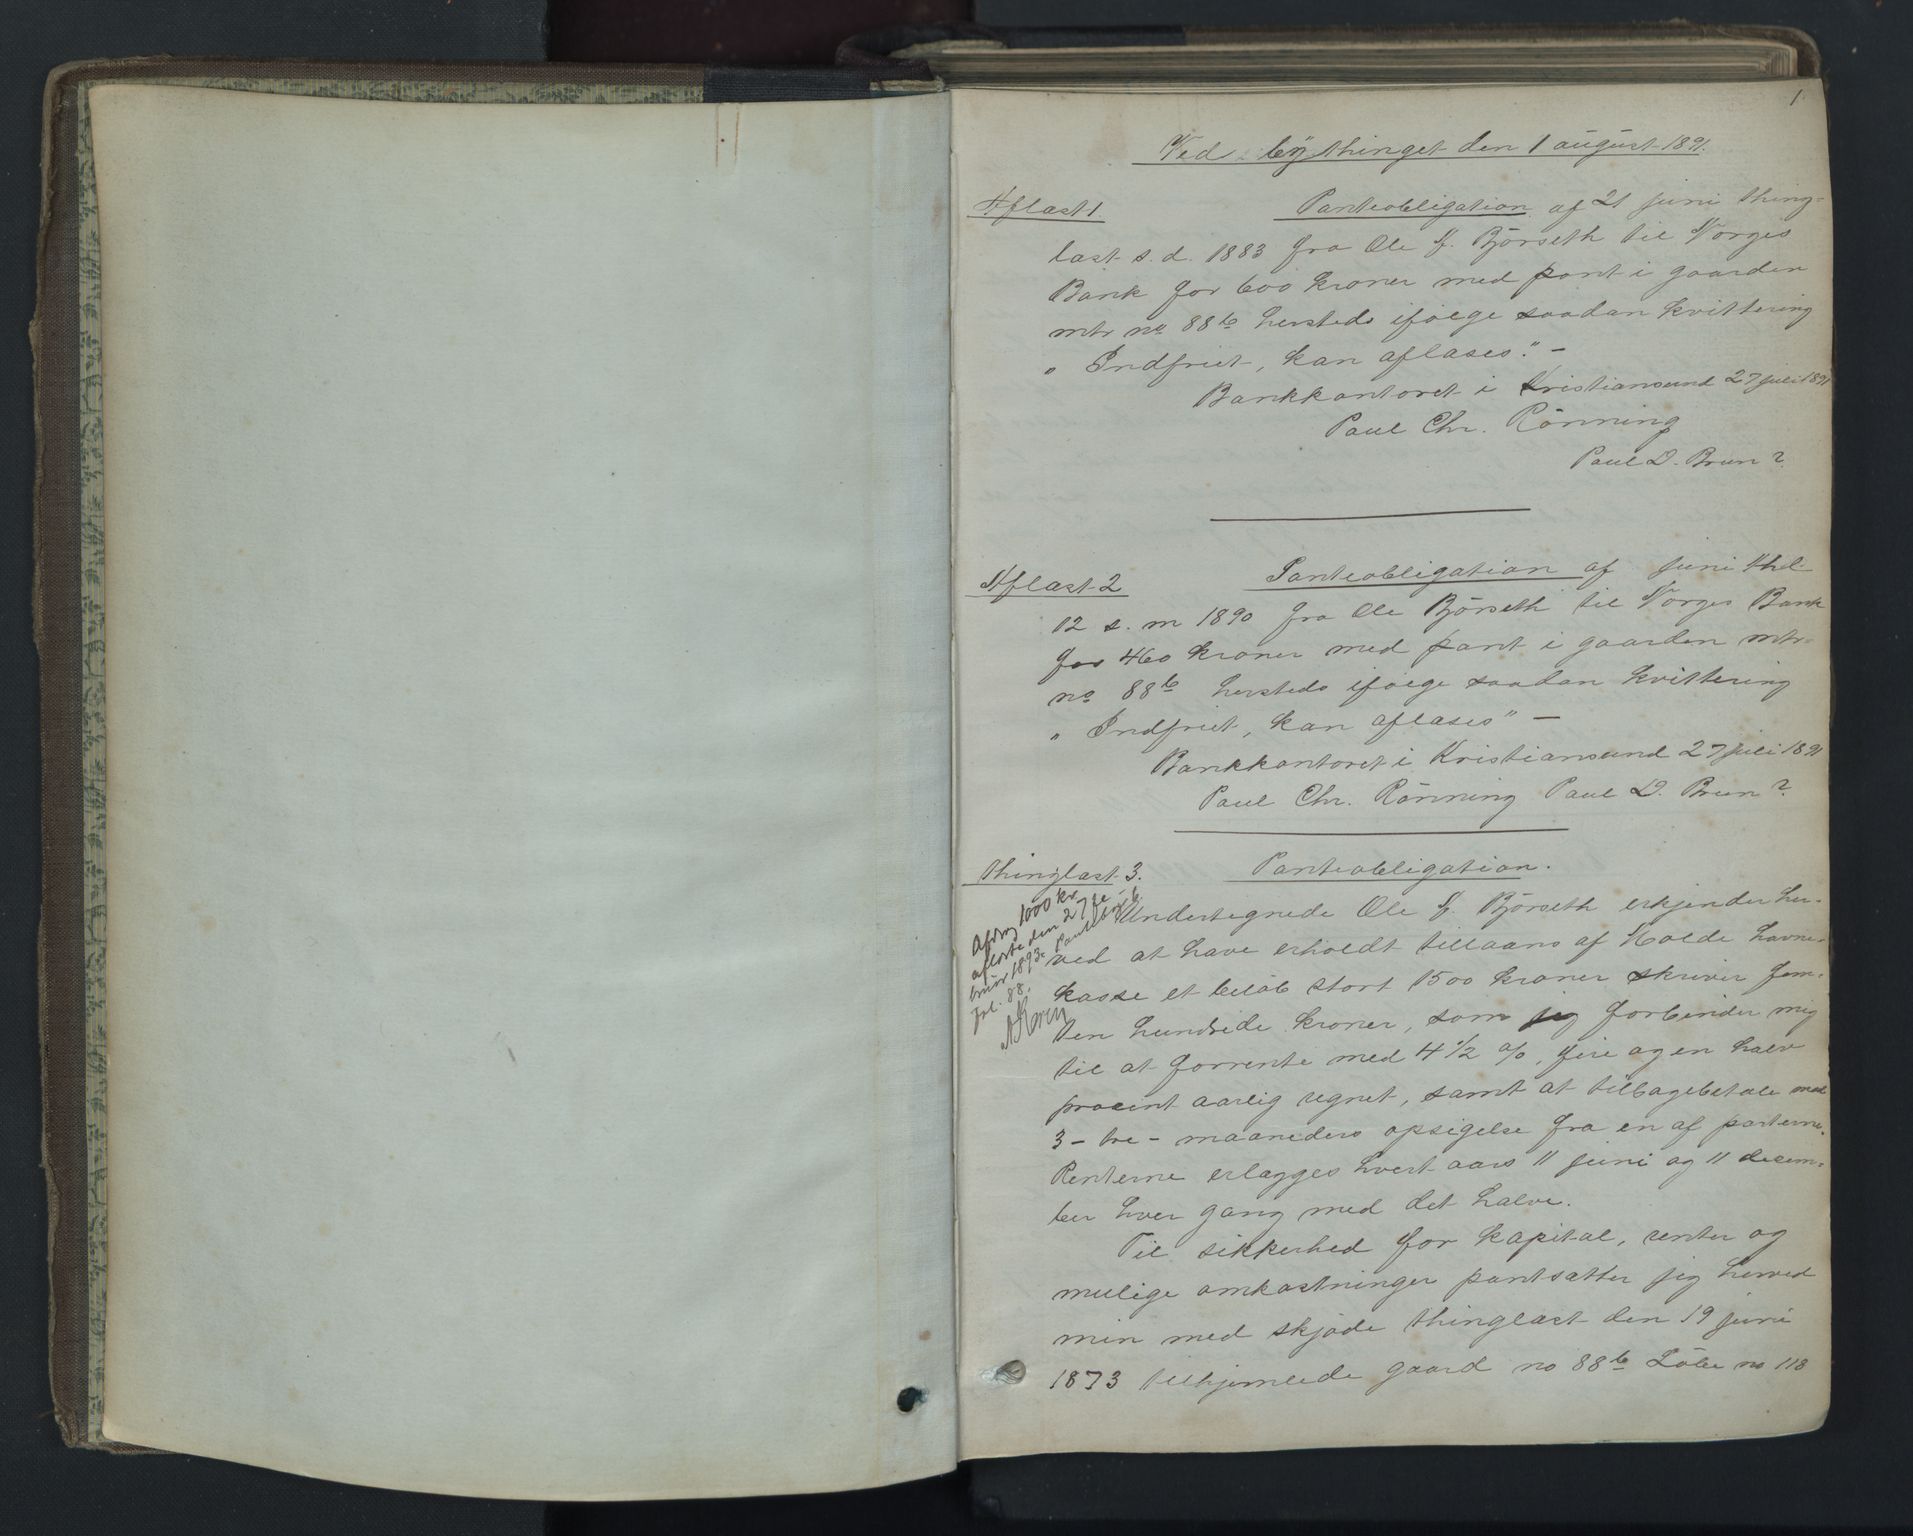 1
Ved bythinget den 1 august 1891.
Aflæst 1. Panteobligation af 21 juni thing-
læst s. d. 1883 fra Ole J. Bjørseth til Norges
Bank for 600 kroner med pant i gaarden
mtr no 88b hersteds ifølge saadan kvittering
„ Indfriet, kan aflæses." –
Bankkontoret i Kristiansund 27 juli 1891
Paul Chr. Rønning
Paul D. Brun ?
Aflæst 2 Panteobligation af juni thl.
12 s. m 1890 fra Ole Bjørseth til Norges Bank
for 460 kroner med pant i gaarden mtr-
no 88b hersteds ifølge saadan kvittering
„ Indfriet, kan aflæses" –
Bankkontoret i Kristiansund 27 juli 1891
Paul Chr. Rønning Paul D. Brun ?
Thinglæst 3. Panteobligation.
Afdrag 1000 kr.
aflæste den 27 fe-
bruar 1893. Pantebog 6.
fol. 88.
Undertegnede Ole J. Bjørseth erkjender her-
ved at have erholdt tillaans af Molde havne-
kasse et beløb stort 1500 kroner skriver fem-
ten hundrede kroner, som jeg forbinder mig
til at forrente med 4 1/2 %, fire og en halv
procent aarlig regnet, samt at tilbagebetale med
3 – tre – maaneders opsigelse fra en af parterne.
Renterne erlægges hvert aars 11 juni og 11 decem-
ber hver gang med det halve.
Til sikkerhed for kapital, renter og
mulige omkostninger pantsætter jeg herved
min med skjøde thinglæst den 19 juni
1873 tilhjemlede gaard no 88b Løbe no 118